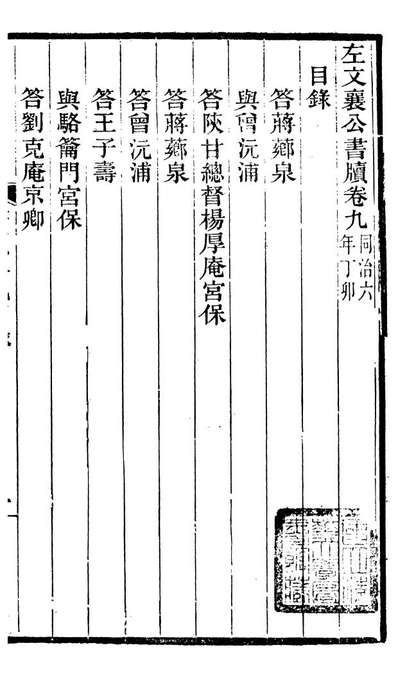 左文襄公書牘卷九 同治六年丁卯
目錄
答蔣薌泉
與曾沅浦
答陝甘總督楊厚庵宮保
答蔣薌泉
答曾沅浦
答王子壽
與駱籥門宮保
答劉克庵京卿